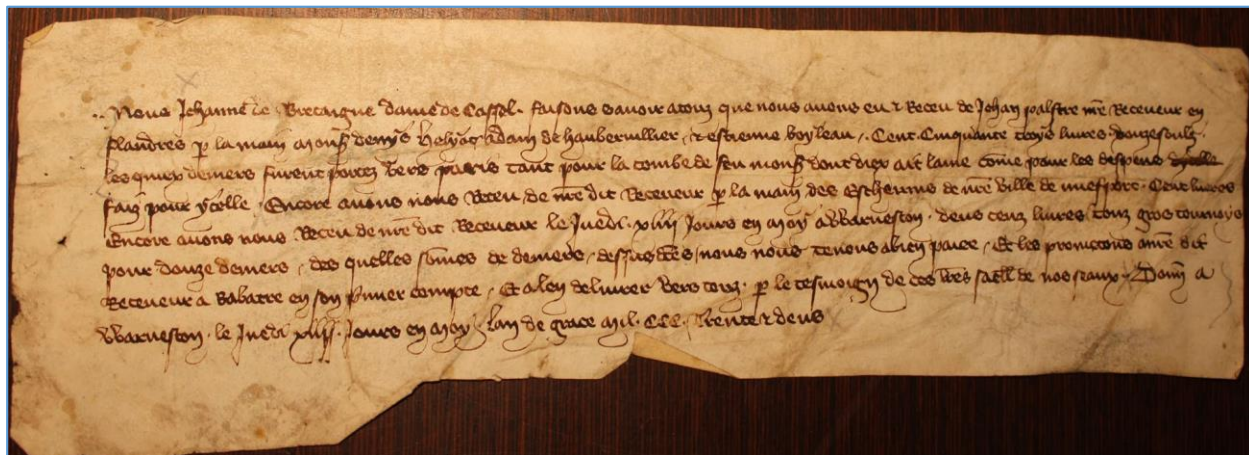 Nous Jehanne de Bretaigne dame de Cassel . faisons savoir a touz que nous avons eu & Receu de Jehan palstre nre Receveur en
flandres p la main monss denys helyot adam de haubervillier , & estienne boyleau . Cent . Cinquante troys livres douze soulz .
les quiex deniers furent portez vers paris tant pour la tombe de feu monss dont diex ait lame come pour les despens dycelle
faiz pour ycelle . Encore avons nous Receu de nre dit Receveur p la main des Eschevins de nre ville de nuefport . Cent livres
Encore avons nous Receu de nre dit Receveur le Juedi . xiiij Jours en may a Warneston . deus cenz livres touz gros tournoys
pour douze deniers , des quelles somes de deniers dessus dces nous nous tenons a bien paiee , Et les prometons a nre dit
Receveur a Rabatre en son pmier compte , Et a len delivrer vers touz . p le tesmoign de ces lres saell de noz seaux . Donn a
Warneston . le Juedi xiiij . Jours en may lan de grace mil . CCC . Trente & deus